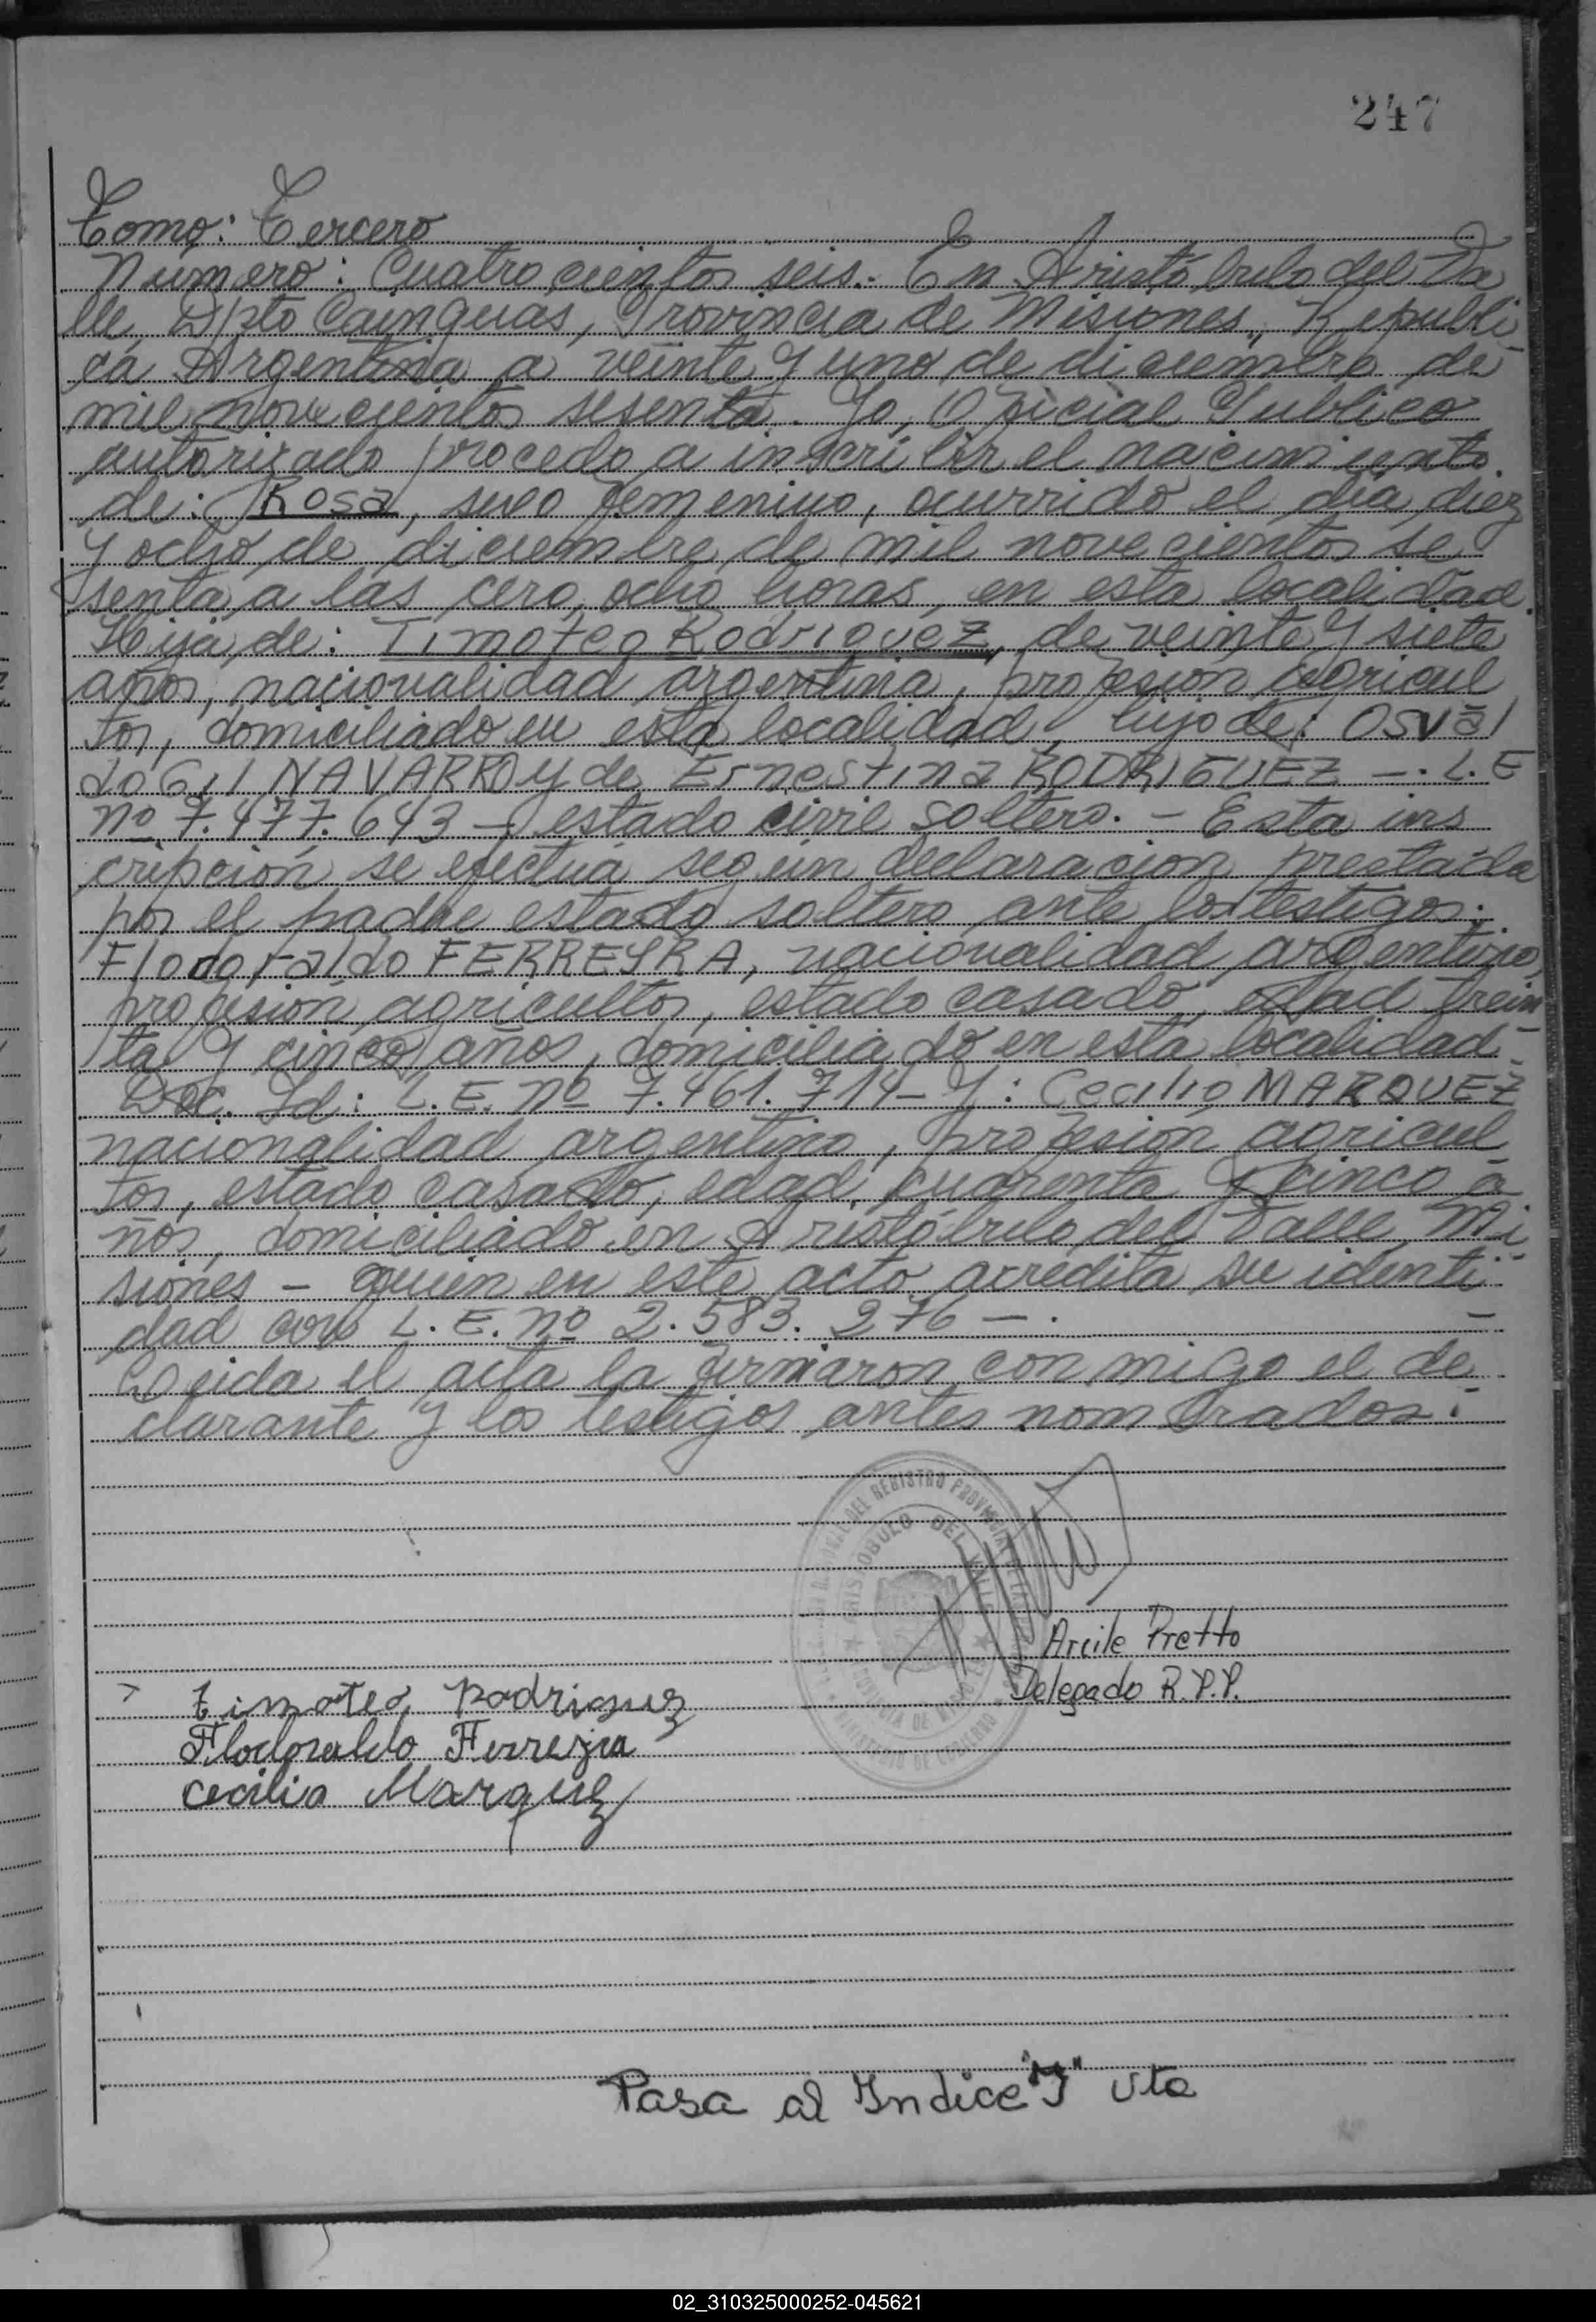 247
Tomo: Tercero
Número: Cuatrocientos seis. En Aristóbulo del Va
lle, Dpto Cainguas, Provincia de Misiones, Republi
ca Argentina a veinte y uno de diciembre de
mil novecientos sesenta. Yo, Oficial Publico
autorizado procedo a inscribir el nacimiento
de: Rosa, sexo femenino, ocurrido el día diez
y ocho de diciembre de mil novecientos se
senta a las cero, ocho horas, en esta localidad.
Hija de: Timoteo Rodriguez, de veinte y siete
años, nacionalidad argentina, profesión agricul
tor, domiciliado en esta localidad, hijo de: Osval
do Gil NAVARRO y de Ernestina RODRIGUEZ -. L.E
nº 7.477.643 - estado civil soltero. - Esta ins
cripción se efectua según declaracion prestada
por el padre estado soltero ante los testigos:
Flodoraldo FERREYRA, nacionalidad argentino,
profesión agricultor, estado casado, edad trein
ta y cinco años, domiciliado en esta localidad -
Doc. Id: L.E. nº 7.461.714 - Y: Cecilio MARQUEZ
nacionalidad argentino, profesión agricul
tor, estado casado, edad cuarenta y cinco a
ños, domiciliado en Aristóbulo del Valle, Mi
siones - quien en este acto acredita su identi
dad con L.E. nº 2.583.276 -.
Leida el acta la firmaron conmigo el de
clarante y los testigos antes nombrados:
DEL REGISTRO PROVINCIAL
ARISTOBULO DEL VALLE
MINISTERIO DE GOBIERNO
Arcile Pretto
Delegado R.P.P.
Timoteo Rodriguez
Flodoraldo Ferreyra
Cecilio Marquez
Pasa al Indice "J" vta
02_310325000252-045621